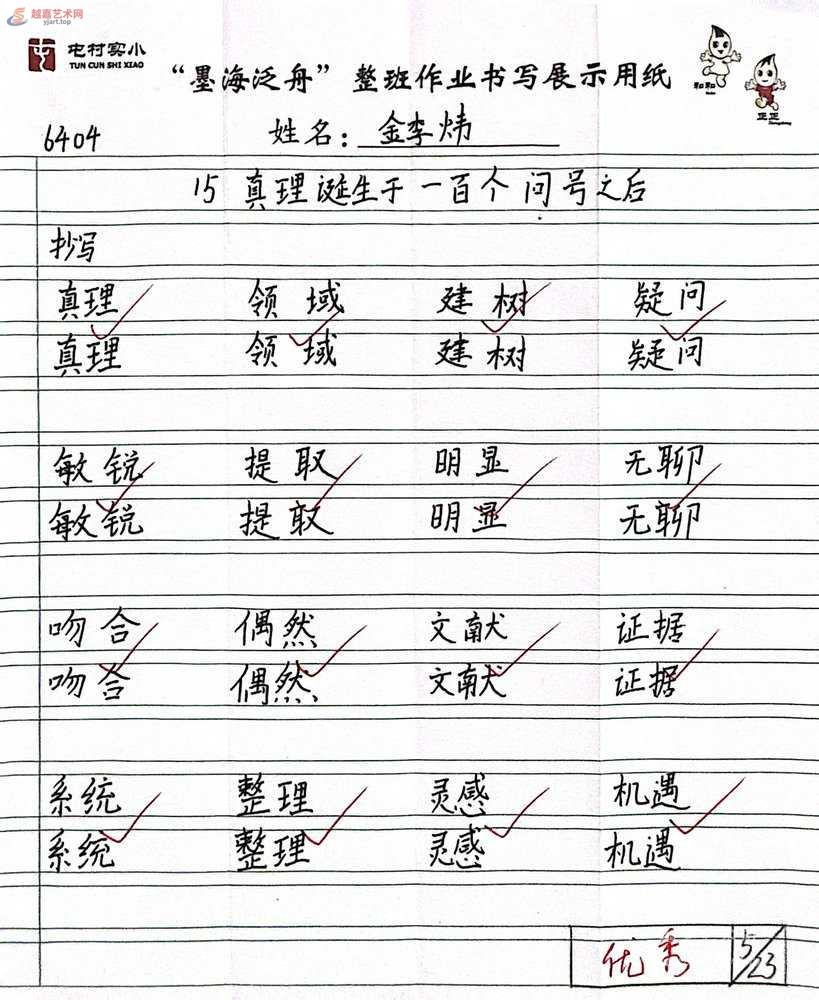 越嘉艺术网
yjart.top
屯村实小
TUN CUN SHI XIAO
“墨海泛舟”整班作业书写展示用纸
和和
正正
6404 姓名：金李炜
15 真理诞生于一百个问号之后
抄写
真理 领域 建树 疑问
真理 领域 建树 疑问
敏锐 提取 明显 无聊
敏锐 提取 明显 无聊
吻合 偶然 文献 证据
吻合 偶然 文献 证据
系统 整理 灵感 机遇
系统 整理 灵感 机遇
优秀 5/23